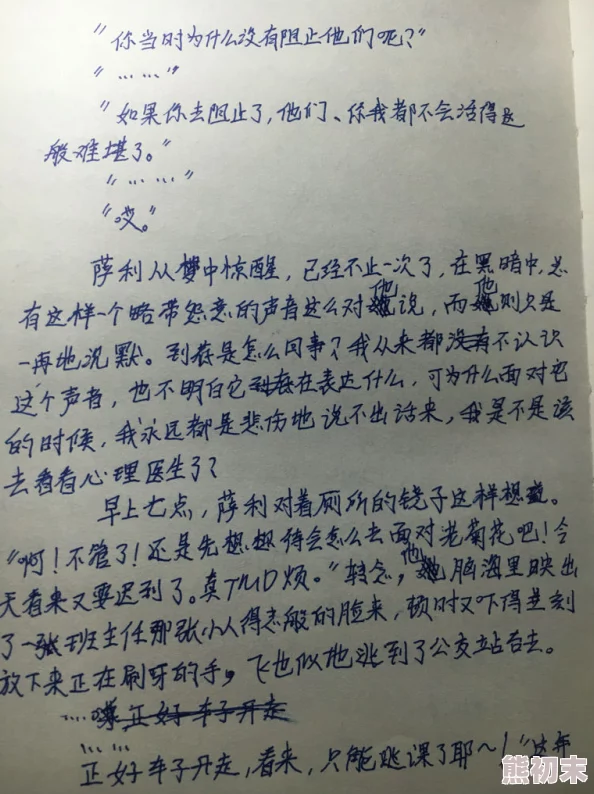 “你当时为什么没有阻止他们呢?”
“……”
“如果你去阻止了,他们、你我都不会活得这
般难堪了。”
“……”
“哎。”
萨利从梦中惊醒,已经不止一次了,在黑暗中,总
有这样一个略带怨意的声音这么对他说,而他则只是
一再地沉默。到底是怎么回事?我从来都不认识
这个声音,也不明白它在表达什么,可为什么面对它
的时候,我永远都是悲伤地说不出话来,我是不是该
去看看心理医生了?
早上七点,萨利对着厕所的镜子这样想。
“啊!不管了!还是先想想待会怎么去面对老菊花吧!今
天看来又要迟到了。真TMD烦。”转念,他脑海里映出
了一张班主任那张小人得志般的脸来,顿时又吓得立刻
放下来正在刷牙的手,飞也似地逃到了公交站台去。
……嘿正好车子开走
……
正好车子开走,看来,只能逃课了耶~!”这年
熊初末